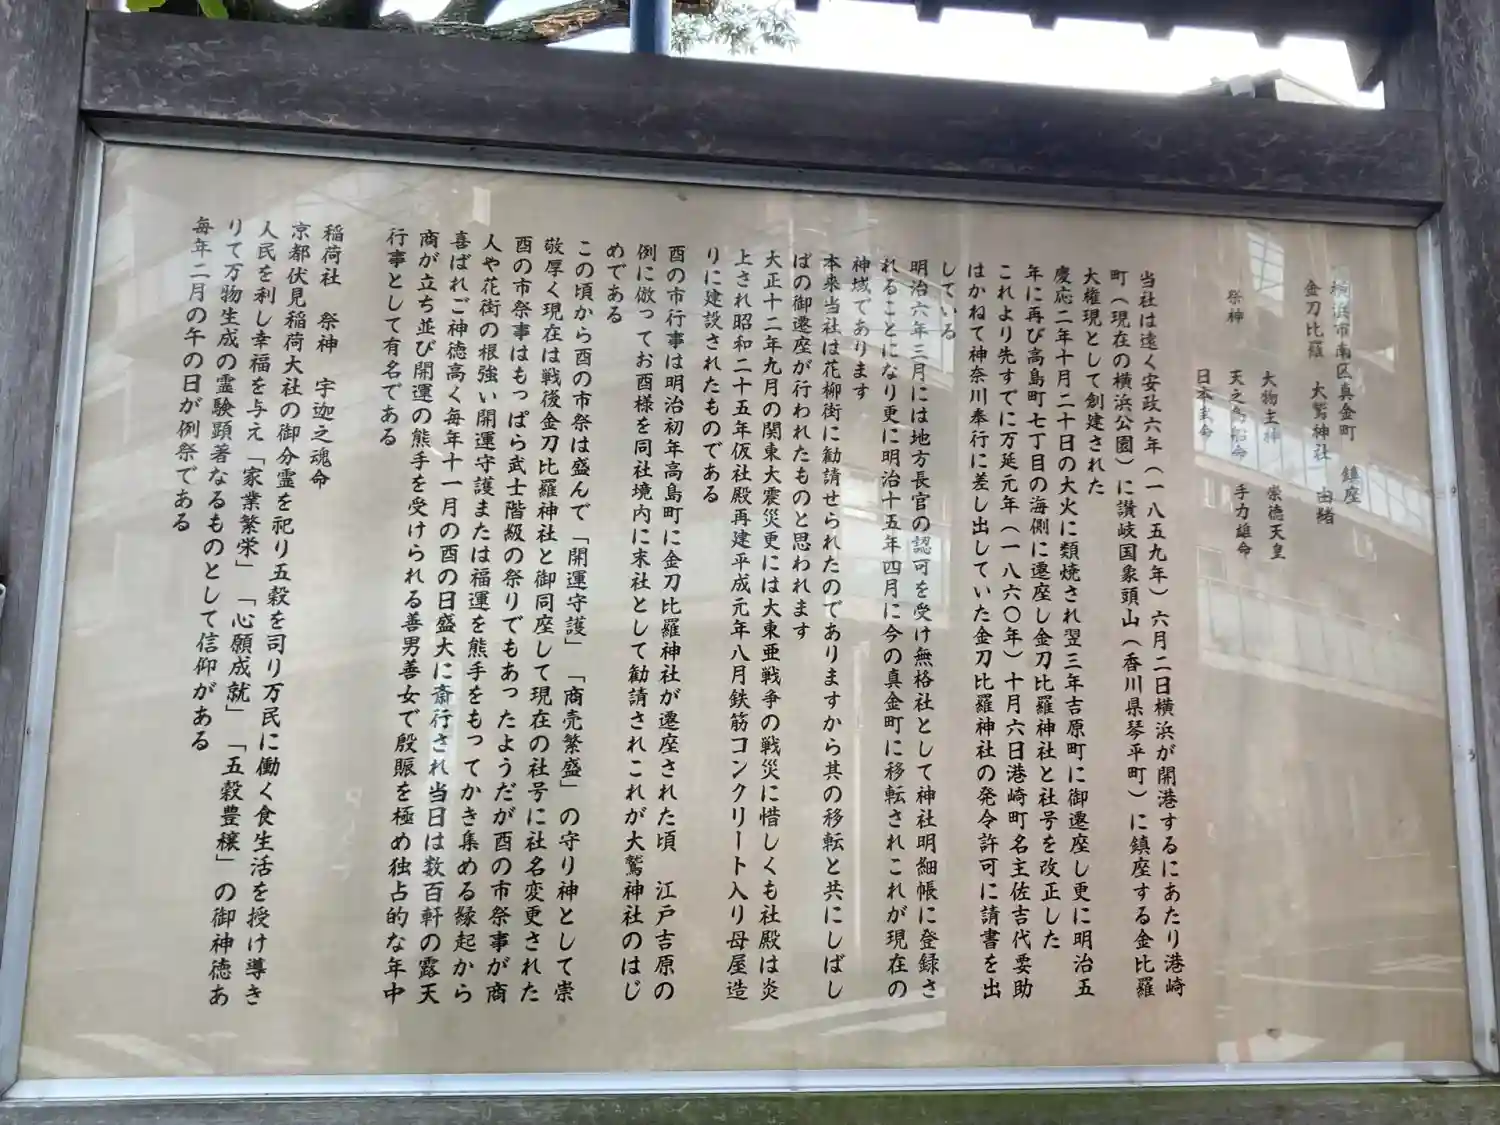 横浜市南区真金町 鎮座
金刀比羅 大鷲神社 由緒
大物主神 崇徳天皇
祭神 天之鳥船命 手力雄命
日本武命
当社は遠く安政六年（一八五九年）六月二日横浜が開港するにあたり港崎
町（現在の横浜公園）に讃岐国象頭山（香川県琴平町）に鎮座する金比羅
大権現として創建された
慶応二年十月二十日の大火に類焼され翌三年吉原町に御遷座し更に明治五
年に再び高島町七丁目の海側に遷座し金刀比羅神社と社号を改正した
これより先すでに万延元年（一八六〇年）十月六日港崎町名主佐吉代要助
はかねて神奈川奉行に差し出していた金刀比羅神社の発令許可に請書を出
している
明治六年三月には地方長官の認可を受け無格社として神社明細帳に登録さ
れることになり更に明治十五年四月に今の真金町に移転されこれが現在の
神域であります
本来当社は花柳街に勧請せられたのでありますから其の移転と共にしばし
ばの御遷座が行われたものと思われます
大正十二年九月の関東大震災更には大東亜戦争の戦災に惜しくも社殿は炎
上され昭和二十五年仮社殿再建平成元年八月鉄筋コンクリート入り母屋造
りに建設されたものである
酉の市行事は明治初年高島町に金刀比羅神社が遷座された頃 江戸吉原の
例に倣ってお酉様を同社境内に末社として勧請されこれが大鷲神社のはじ
めである
この頃から酉の市祭は盛んで「開運守護」「商売繁盛」の守り神として崇
敬厚く現在は戦後金刀比羅神社と御同座して現在の社号に社名変更された
酉の市祭事はもっぱら武士階級の祭りでもあったようだが酉の市祭事が商
人や花街の根強い開運守護または福運を熊手をもってかき集める縁起から
喜ばれご神徳高く毎年十一月の酉の日盛大に斎行され当日は数百軒の露天
商が立ち並び開運の熊手を受けられる善男善女で殷賑を極め独占的な年中
行事として有名である
稲荷社 祭神 宇迦之魂命
京都伏見稲荷大社の御分霊を祀り五穀を司り万民に働く食生活を授け導き
人民を利し幸福を与え「家業繁栄」「心願成就」「五穀豊穣」の御神徳あ
りて万物生成の霊験顕著なるものとして信仰がある
毎年二月の午の日が例祭である